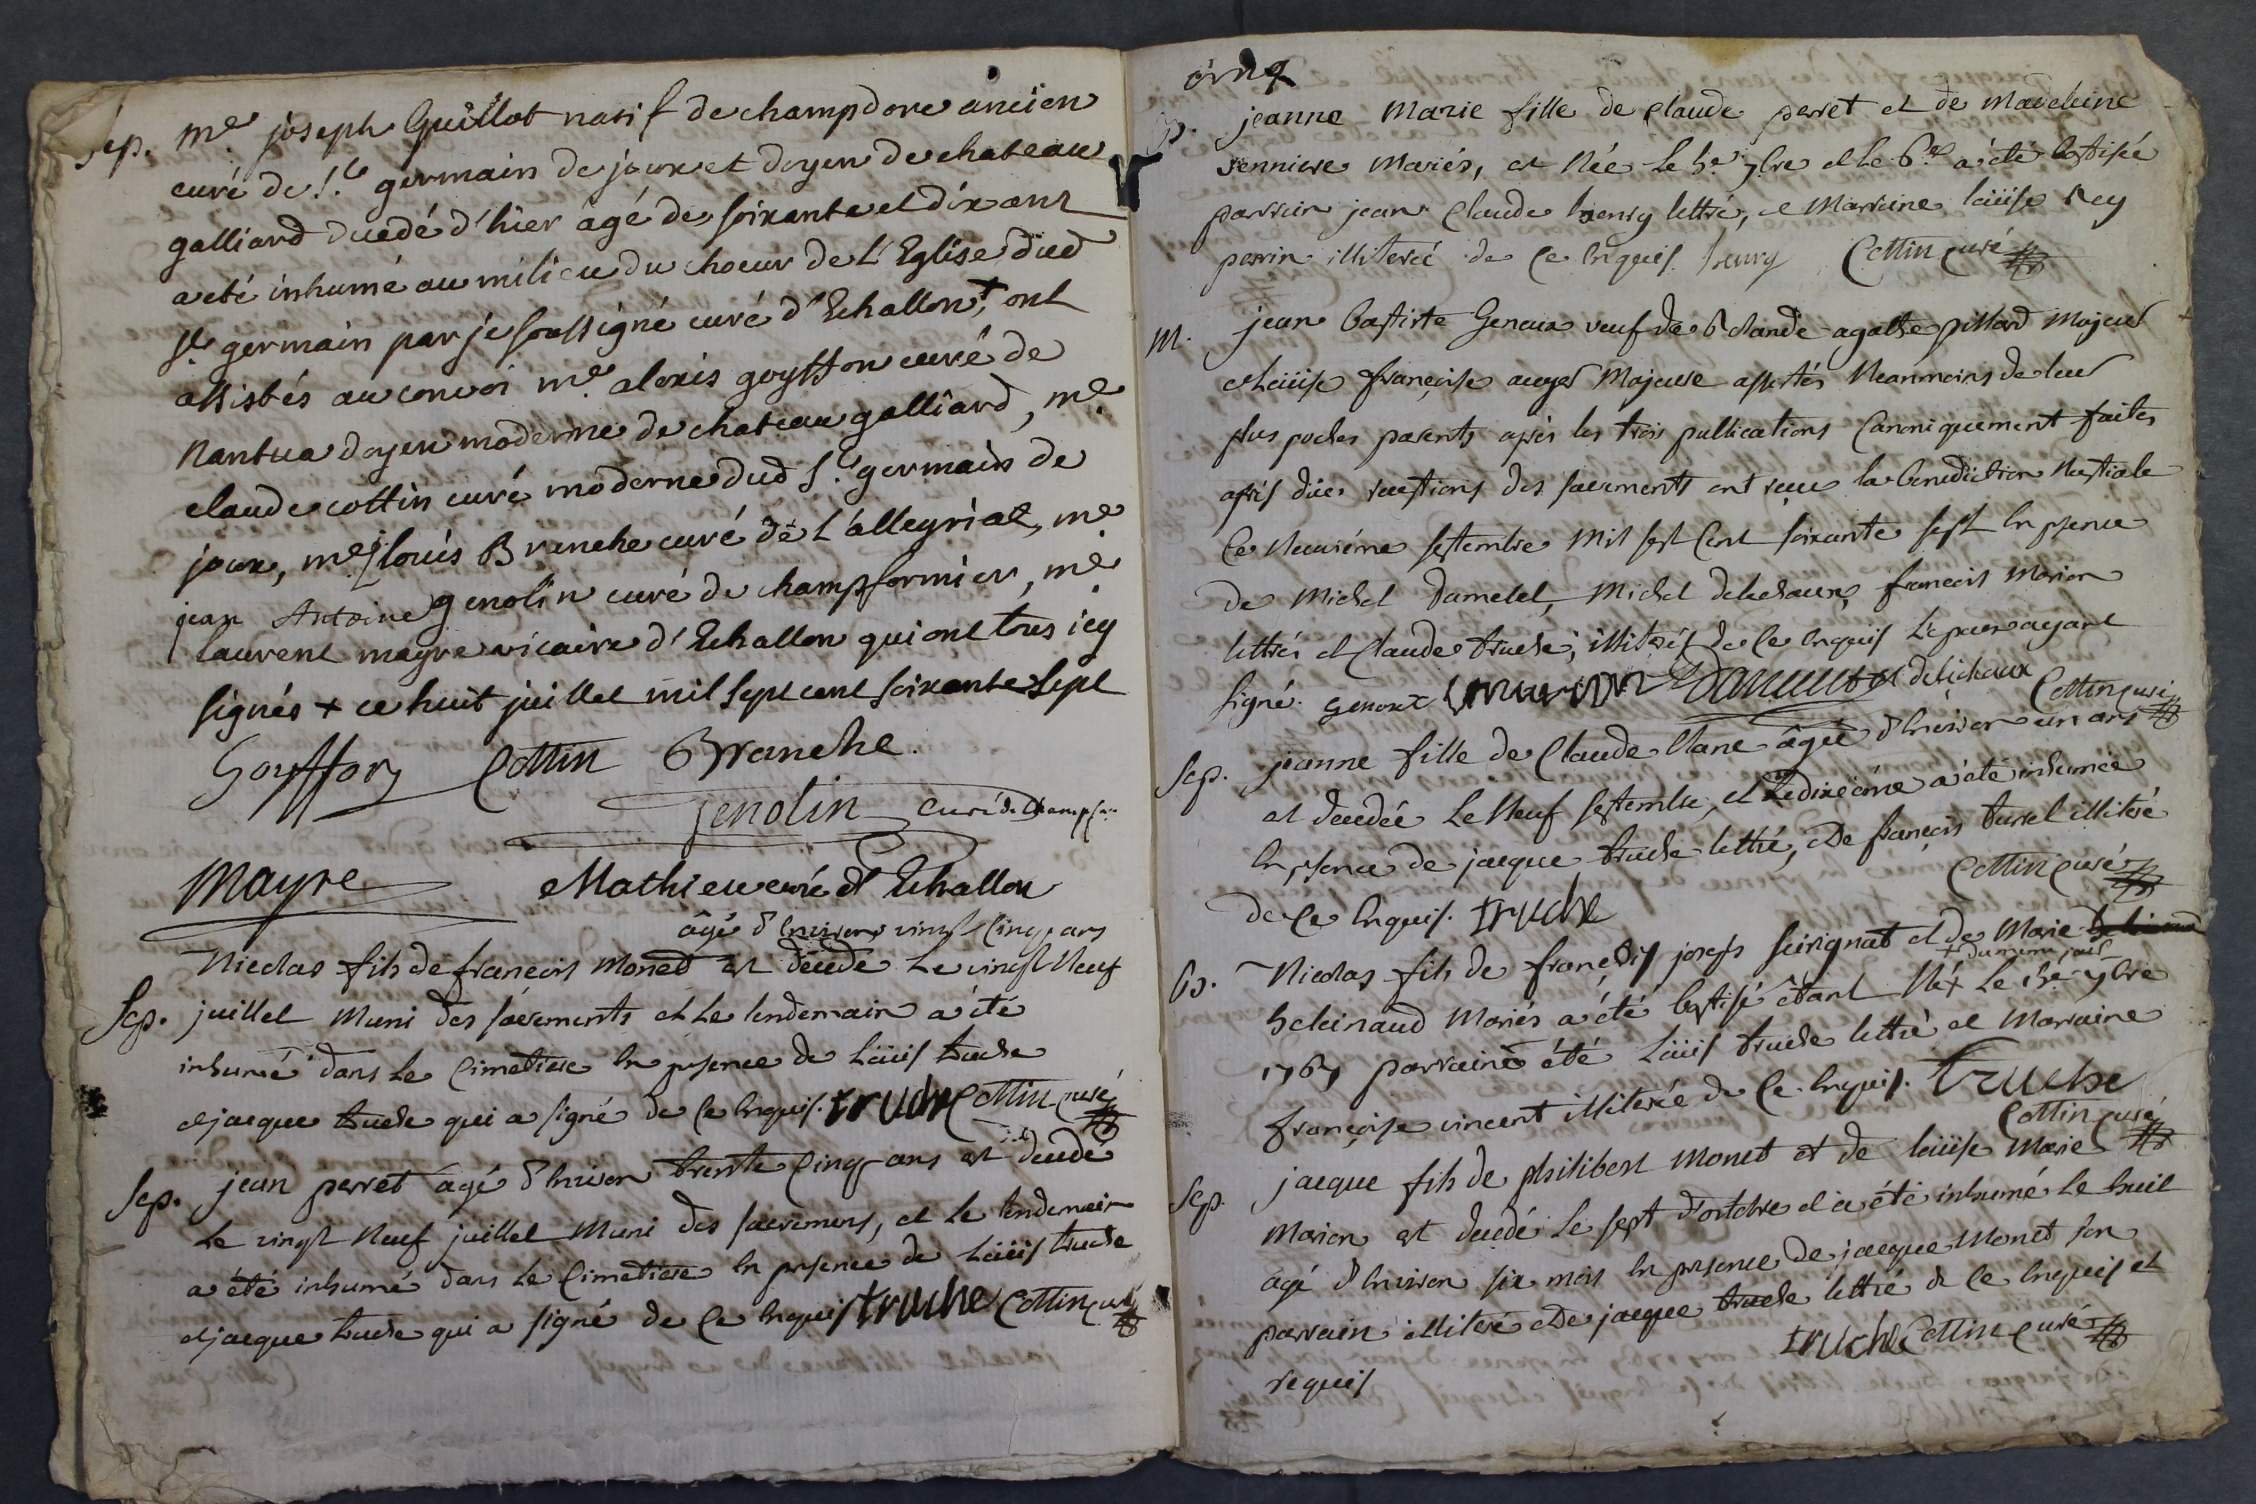 Sep. me. joseph Guillot natif de champdore ancien
curé de St. germain de joux et doyen de chateau
galliard decedé d'hier agé de soixante et dix ans
a eté inhumé au milieu du choeur de L'Eglise dud
St. germain par je soussigné curé d'Echallon, + ont
assistés au convoi me. alexis goyffon curé de
Nantua doyen moderne de chateau galliard, me.
claude cottin curé moderne dud St. germain de
joux, me. louis Branche curé de L'alleyriat, me.
jean Antoine genolin curé de champformier, me.
laurent mayre vicaire d'Echallon qui ont tous icy
signés + ce huit juillet mil sept cent soixante Sept
Goyffon Cottin Branche
Genolin curé de Champf
Mayre Mathieu curé d'Echallon
âgé d'Environ vingt Cinq ans
Nicolas fils de francois Moned est décédé Le vingt Neuf
Sep. juillet Muni des sacrements et Le lendemain a été
inhumé dans Le Cimetiere En presence de Loüis truche
et jacque truche qui a signé de Ce Enquis. truche Cottin curé
Sep. jean perret agé d'Environ trente Cinq ans est décédé
Le vingt Neuf juillet Muni des sacremens, et Le lendemain
a été inhumé dans Le Cimetiere En presence de Loüis truche
et jacque truche qui a signé de Ce Enquis truche Cottin curé
cinq
jeanne Marie fille de Claude perret et de Madeleine
Mariés, est Née Le 5e. 7bre et Le 6e. a été baptisée
parrain jean Claude henry lettré, et Marraine loüise Rey
perrin illiterée de Ce Enquis. henry Cottin curé
M. jean baptiste Genoux veuf de Claude agathe pillard Majeur
et Loüise françoise auger Majeure assistés Neanmoins de leur
plus proches parents après les trois publications Canoniquement faites
après dües receptions des sacrements ont reçu la benediction Nuptiale
Ce Neuvième septembre Mil sept Cent soixante sept En presence
de Michel Michel delechaux, francois Marion
lettrés et Claude truche, illiterés de Ce Enquis Le pere ayant
signé. genoux marion delechaux
Cottin curé
Sep. jeanne fille de Claude âgée d'Environ un ans
est decedée Le Neuf septembre, et Le dixième a été inhumée
En presence de jacque truche lettré, et De françois turrel illiteré
de Ce Enquis. truche Cottin curé
B. Nicolas fils de françois joseph seirignat et de Marie
Mariés a été baptisé étant Né + Le 15e 7bre
+ du meme jour
1767 parrain a été Loüis truche lettré et Marraine
françoise vincent illiterée de Ce Enquis. truche
Cottin curé
Sep. jacque fils de philibert Monet et de loüise Marie
Marion est decedé Le sept d'octobre et a été inhumé Le huit
agé d'Environ six mois En presence de jacque Monet son
parrain illiteré et De jacque truche lettré de Ce Enquis et
requis truche Cottin curé